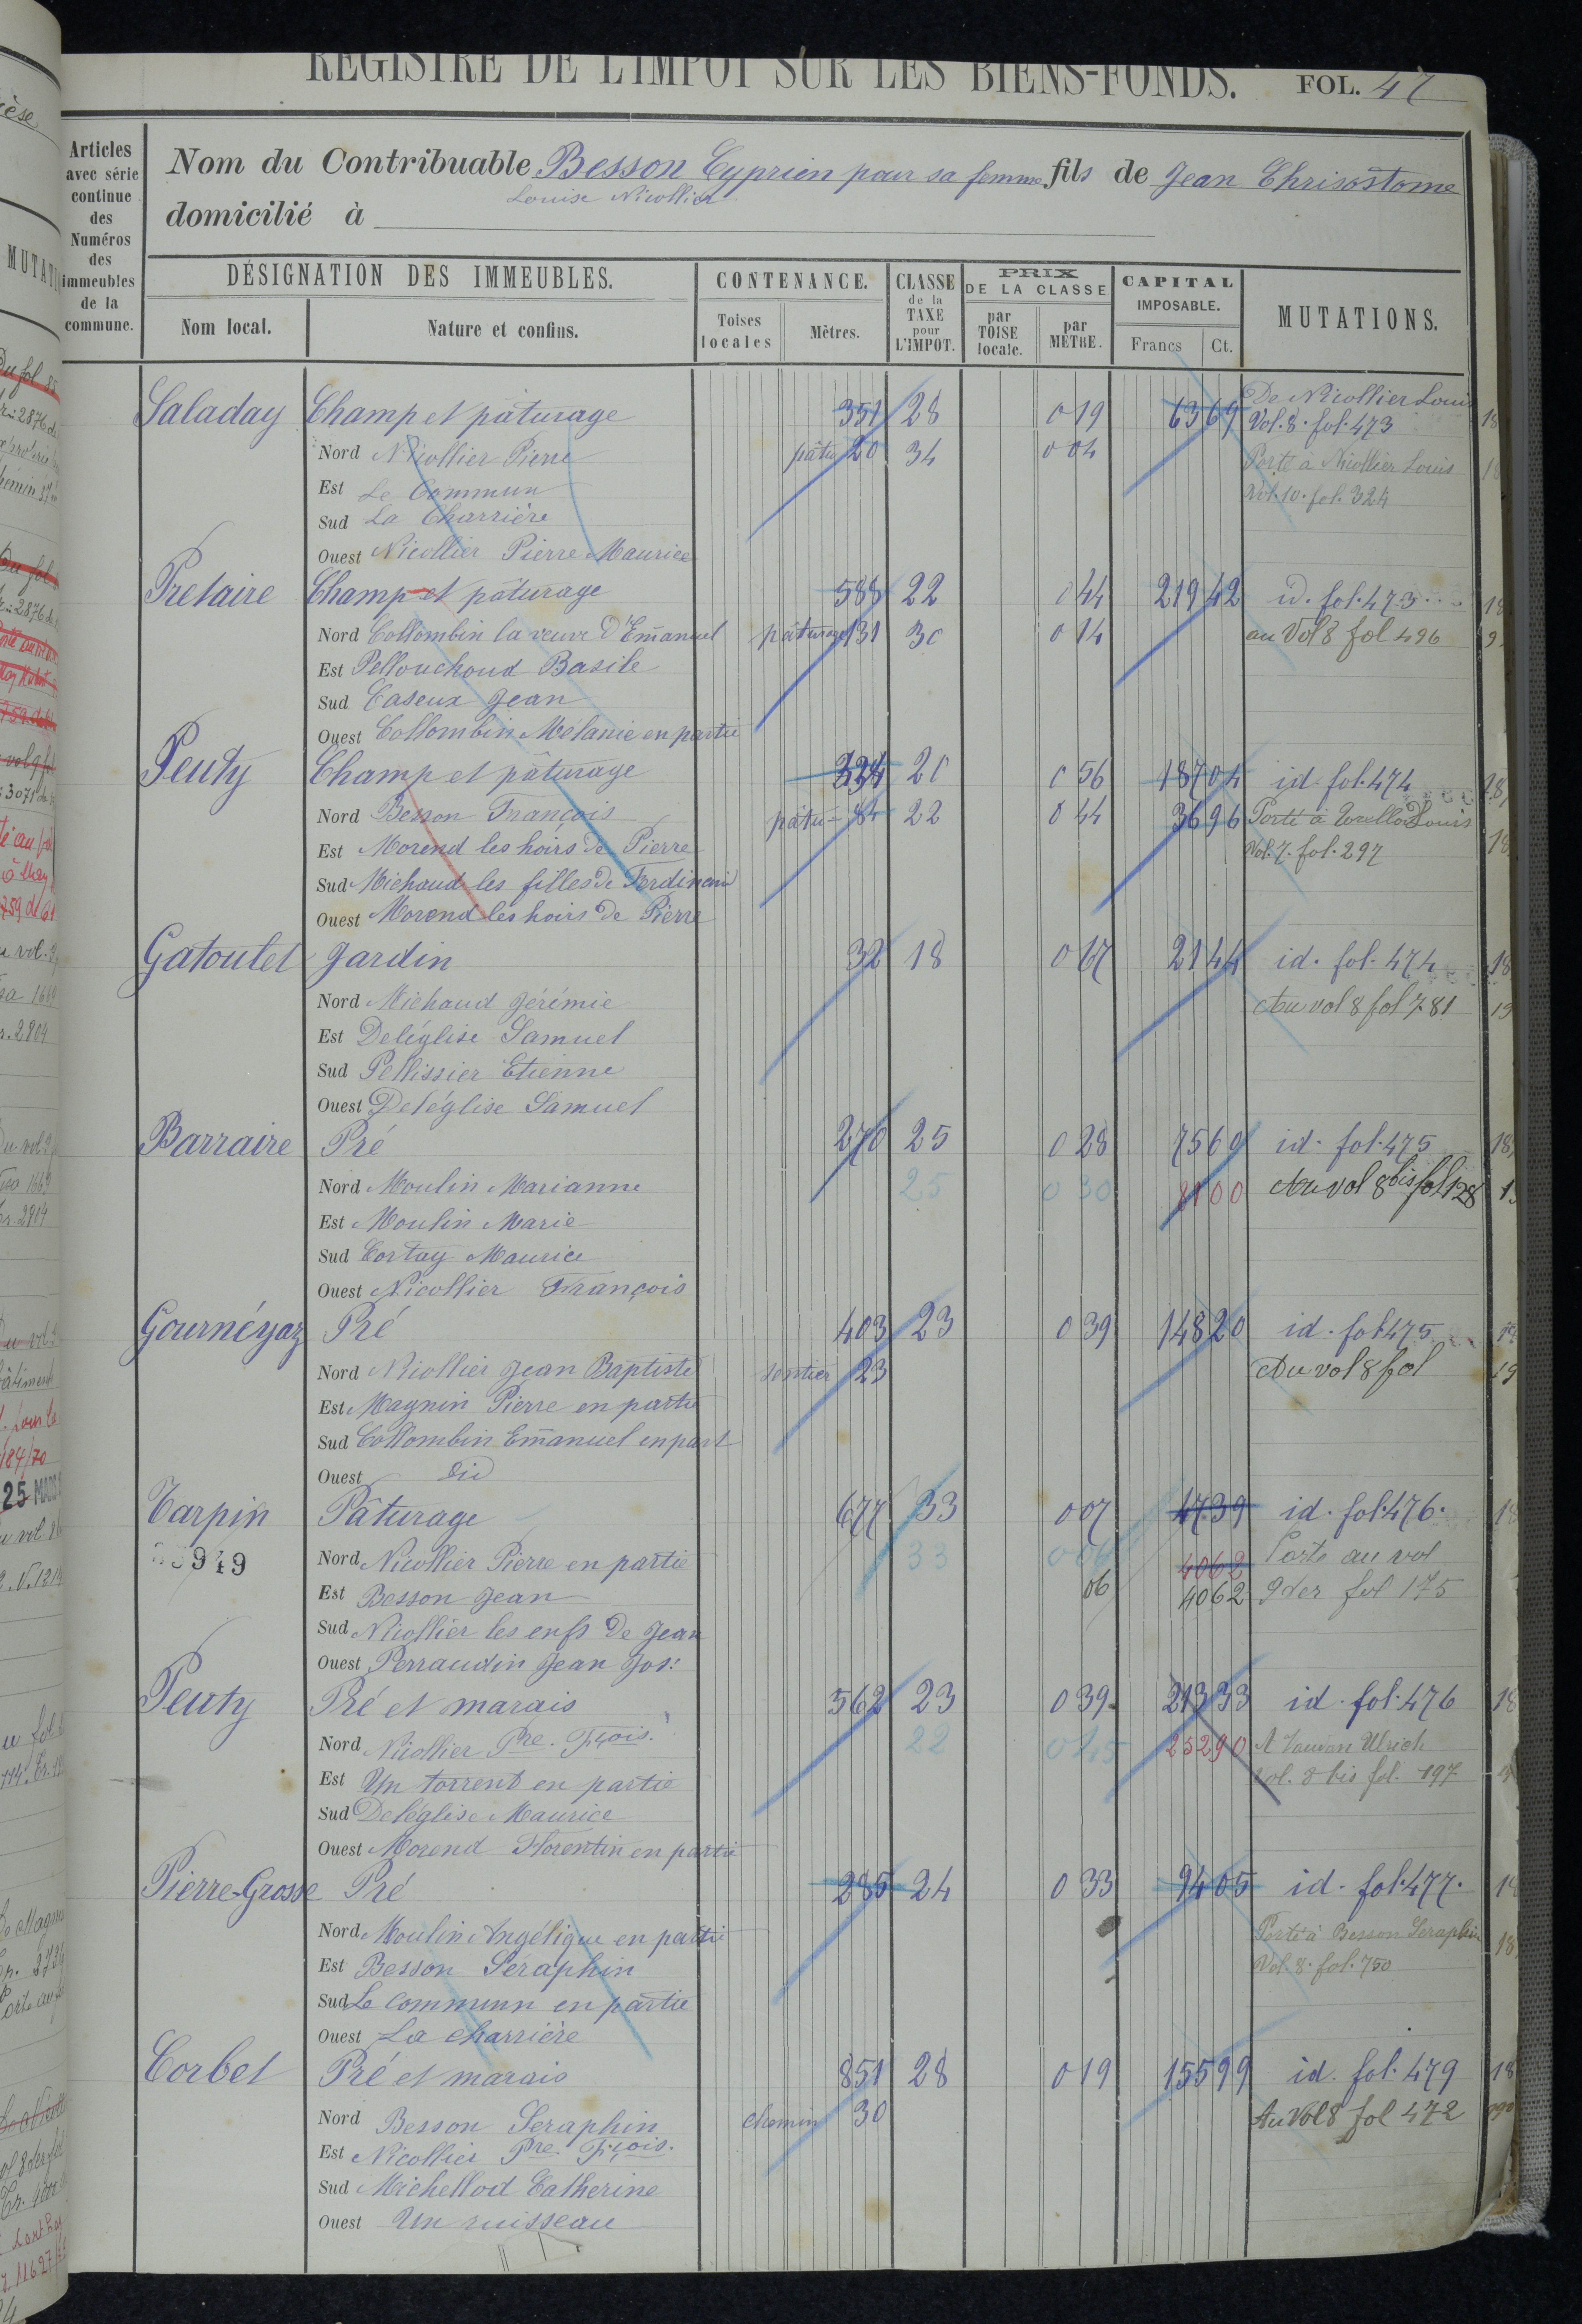 REGISTRE DE L'IMPOT SUR LES BIENS-FONDS. FOL. 47
Articles avec série continue des Numéros des immeubles de la commune.
Nom du Contribuable Besson Cyprien pour sa femme fils de Jean Chrisostome
Louise Nicollier
domicilié à
DÉSIGNATION DES IMMEUBLES. CONTENANCE. CLASSE de la TAXE pour L'IMPOT. PRIX DE LA CLASSE CAPITAL IMPOSABLE. MUTATIONS.
Nom local. Nature et confins. Toises locales Mètres. par TOISE locale. par MÈTRE. Francs Ct.
Saladay Champ et pâturage 351 28 0 19 63 69 De Nicollier Louis
Vol. 8. fol. 473
Nord Nicollier Pierre pâtu 20 34 0 04 Porté à Nicollier Louis
Est Le Commun Vol. 10. fol. 324
Sud La Charrière
Ouest Nicollier Pierre Maurice
Pretaire Champ et pâturage 588 22 0 44 219 42 id. fol. 473
Nord Collombin la veuve d'Emanuel pâturage 131 30 0 14 au Vol 8 fol 496
Est Pellouchoud Basile
Sud Caseux Jean
Ouest Collombin Mélanie en partie
Peuty Champ et pâturage 334 20 0 56 187 04 id. fol. 474
Nord Besson François pâtu 84 22 0 44 36 96 Porté à Louis
Est Morend les hoirs de Pierre Vol. 7. fol. 297
Sud Michaud les filles de Ferdinand
Ouest Morend les hoirs de Pierre
Gatoulet Jardin 32 18 0 67 21 44 id. fol. 474
Nord Michaud Jérémie Au vol 8 fol 781
Est Deléglise Samuel
Sud Pellissier Etienne
Ouest Deléglise Samuel
Barraire Pré 270 25 0 28 75 60 id. fol. 475
Nord Moulin Marianne 25 0 30 81 00 Au vol 8 bis fol 128
Est Moulin Marie
Sud Cortay Maurice
Ouest Nicollier François
Gournéyaz Pré 403 23 0 39 148 20 id. fol 475
Nord Nicollier Jean Baptiste sentier 23 Au vol 8 fol
Est Magnin Pierre en partie
Sud Collombin Emanuel en part
Ouest Did
Tarpin Pâturage 677 33 0 07 47 39 id. fol. 476.
949 Nord Nicollier Pierre en partie 33 0 06 40 62 Porte au vol
Est Besson Jean 06 40 62 9 der fol 175
Sud Nicollier les enfs de Jean
Ouest Perraudin Jean Jos:
Peuty Pré et marais 562 23 0 39 213 33 id. fol. 476
Nord Nicollier Pre. Fçois. 22 0 45 252 90 A Ulrich
Est Un torrent en partie vol. 8 bis fol. 197
Sud Deléglise Maurice
Ouest Morend Florentin en partie
Pierre-Grosse Pré 285 24 0 33 94 05 id. fol. 477.
Nord Moulin Angélique en partie Porté à Besson Seraphin
Est Besson Séraphin Vol. 8. fol. 750
Sud Le commun en partie
Ouest La charrière
Corbet Pré et marais 851 28 0 19 155 99 id. fol. 479
Nord Besson Seraphin chemin 30 Au Vol 8 fol 472
Est Nicollier Pre. Fçois.
Sud Michellod Catherine
Ouest Un ruisseau